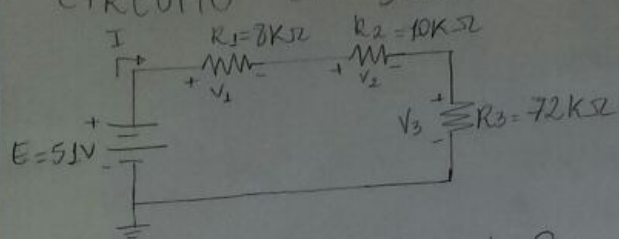 CIRCUITO
I
R1=8KΩ
R2=10KΩ
+ V1 -
+ V2 -
+
V3
-
R3=72KΩ
+
E=51V
-